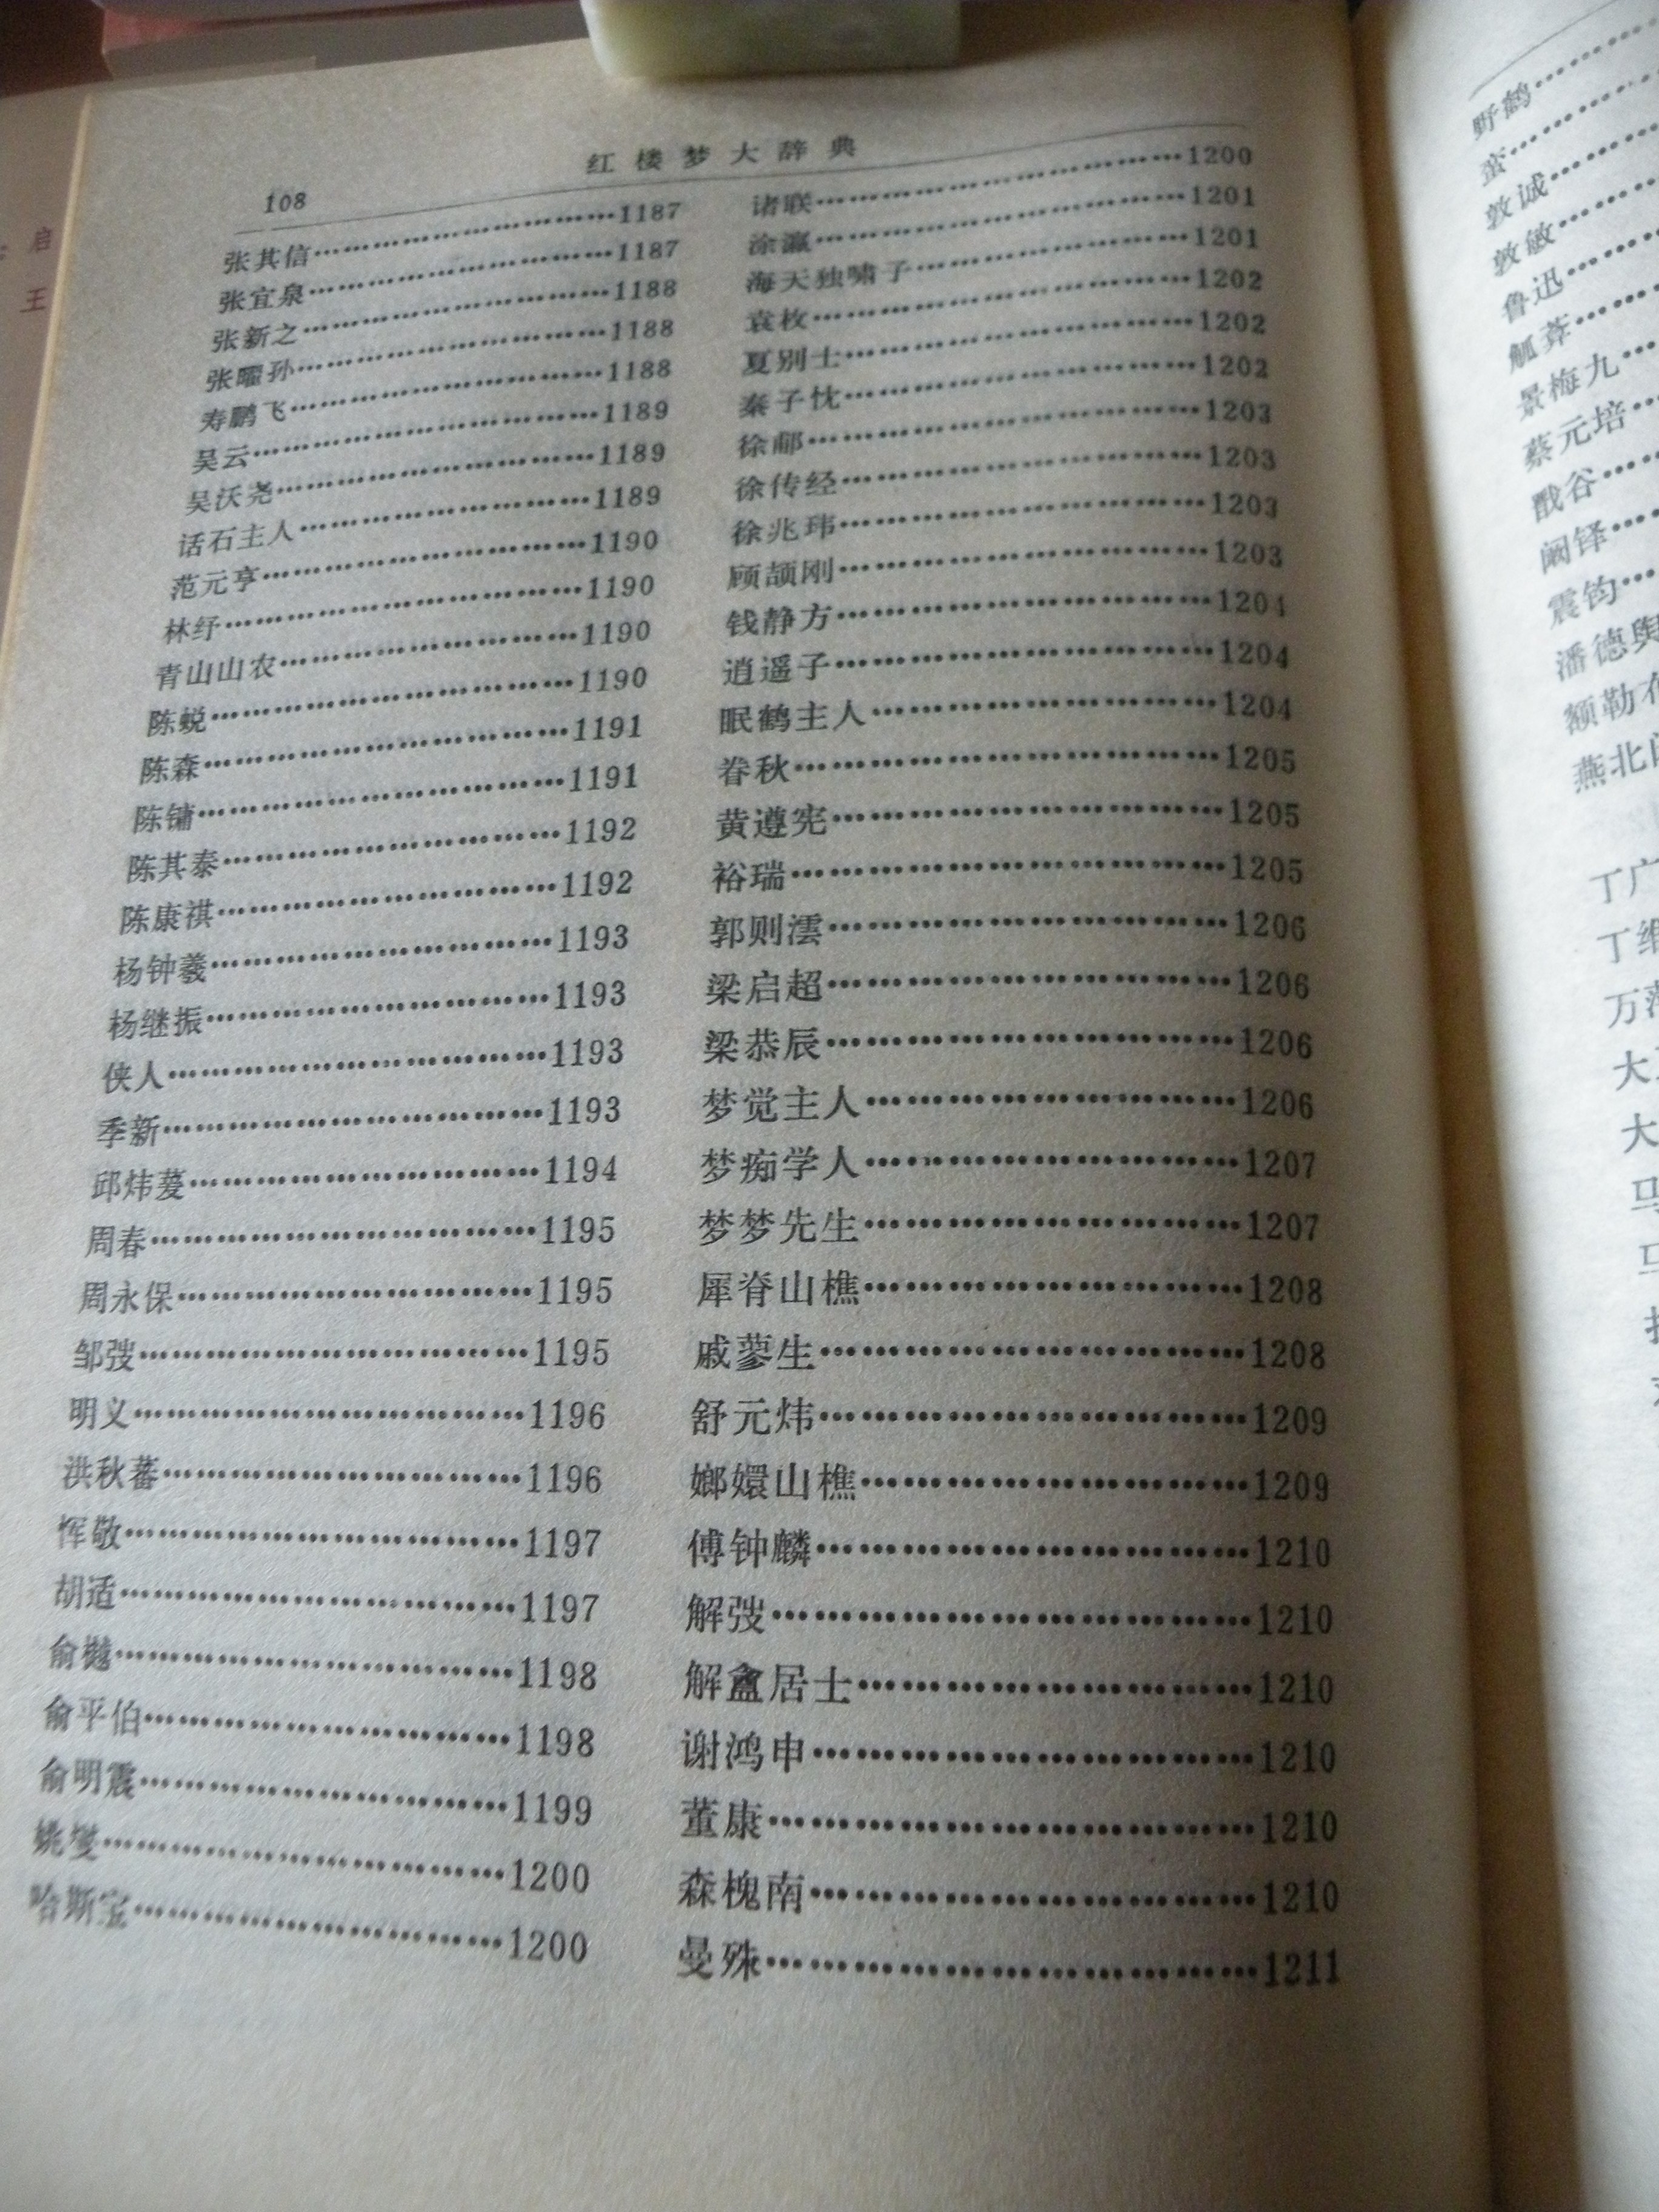 108
红楼梦大辞典
张其信……………………………1187
张宜泉……………………………1187
张新之……………………………1188
张曜孙……………………………1188
寿鹏飞……………………………1188
吴云……………………………1189
吴沃尧……………………………1189
话石主人……………………………1189
范元亨……………………………1190
林纾……………………………1190
青山山农……………………………1190
陈蜕……………………………1190
陈森……………………………1191
陈镛……………………………1191
陈其泰……………………………1192
陈康祺……………………………1192
杨钟羲……………………………1193
杨继振……………………………1193
侠人……………………………1193
季新……………………………1193
邱炜萲……………………………1194
周春……………………………1195
周永保……………………………1195
邹弢……………………………1195
明义……………………………1196
洪秋蕃……………………………1196
恽敬……………………………1197
胡适……………………………1197
俞樾……………………………1198
俞平伯……………………………1198
俞明震……………………………1199
姚燮……………………………1200
哈斯宝……………………………1200
诸联……………………………1200
涂瀛……………………………1201
海天独啸子……………………………1201
袁枚……………………………1202
夏别士……………………………1202
秦子忱……………………………1202
徐鄘……………………………1203
徐传经……………………………1203
徐兆玮……………………………1203
顾颉刚……………………………1203
钱静方……………………………1204
逍遥子……………………………1204
眠鹤主人……………………………1204
眷秋……………………………1205
黄遵宪……………………………1205
裕瑞……………………………1205
郭则澐……………………………1206
梁启超……………………………1206
梁恭辰……………………………1206
梦觉主人……………………………1206
梦痴学人……………………………1207
梦梦先生……………………………1207
犀脊山樵……………………………1208
戚蓼生……………………………1208
舒元炜……………………………1209
嫏嬛山樵……………………………1209
傅钟麟……………………………1210
解弢……………………………1210
解盦居士……………………………1210
谢鸿申……………………………1210
董康……………………………1210
森槐南……………………………1210
曼殊……………………………1211
野鹤……
蛮……
敦诚……
敦敏……
鲁迅……
觚葊……
景梅九……
蔡元培……
戬谷……
阚铎……
震钧……
潘德舆
额勒
燕北
丁广
丁维
万
大
大
马
马
启
王